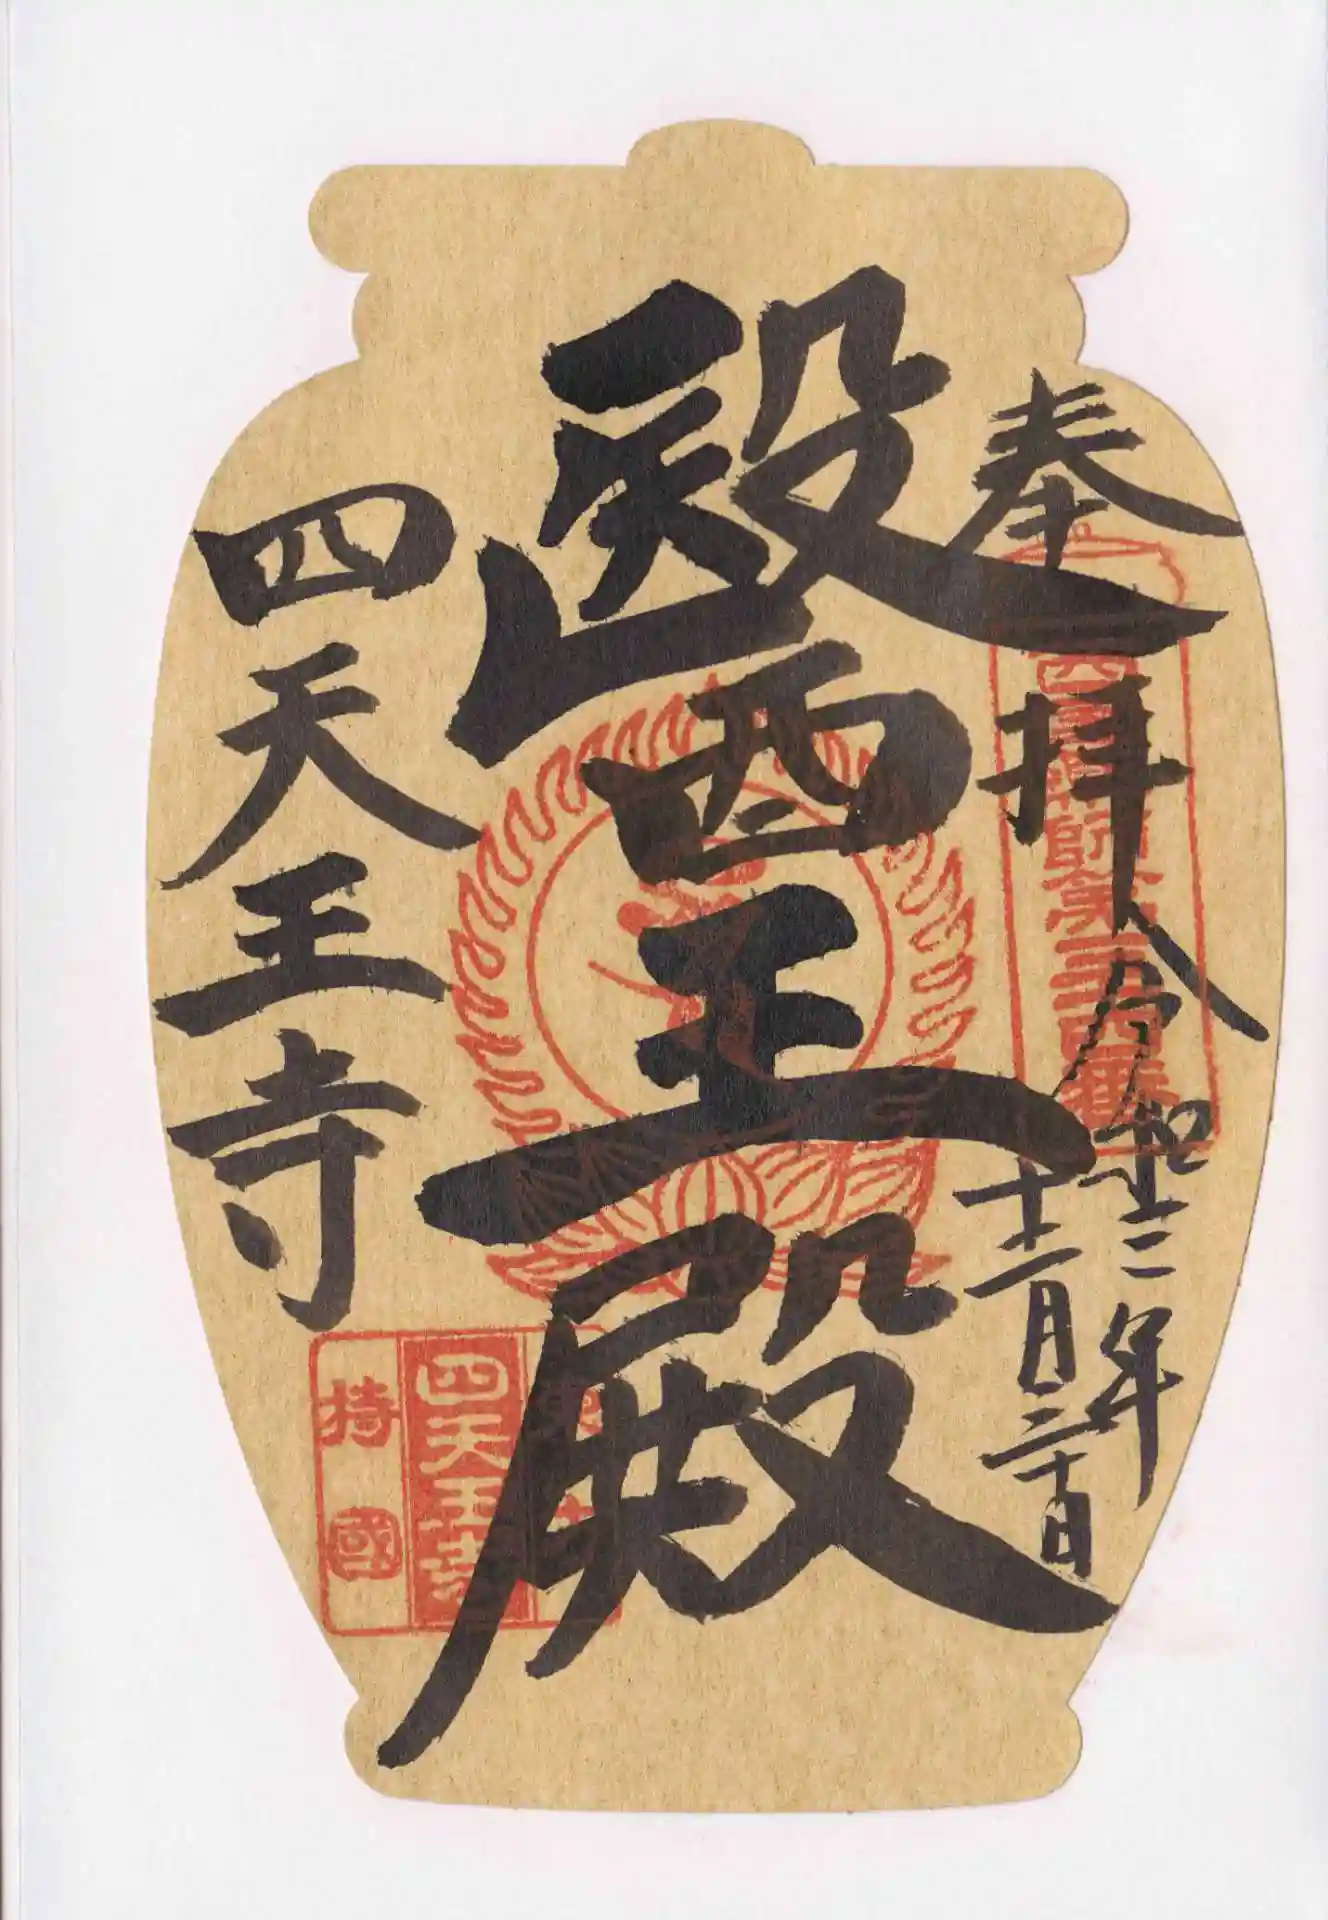 奉拝 令和二年
十二月二十日
醫王殿
四天王寺
四天王寺
持國